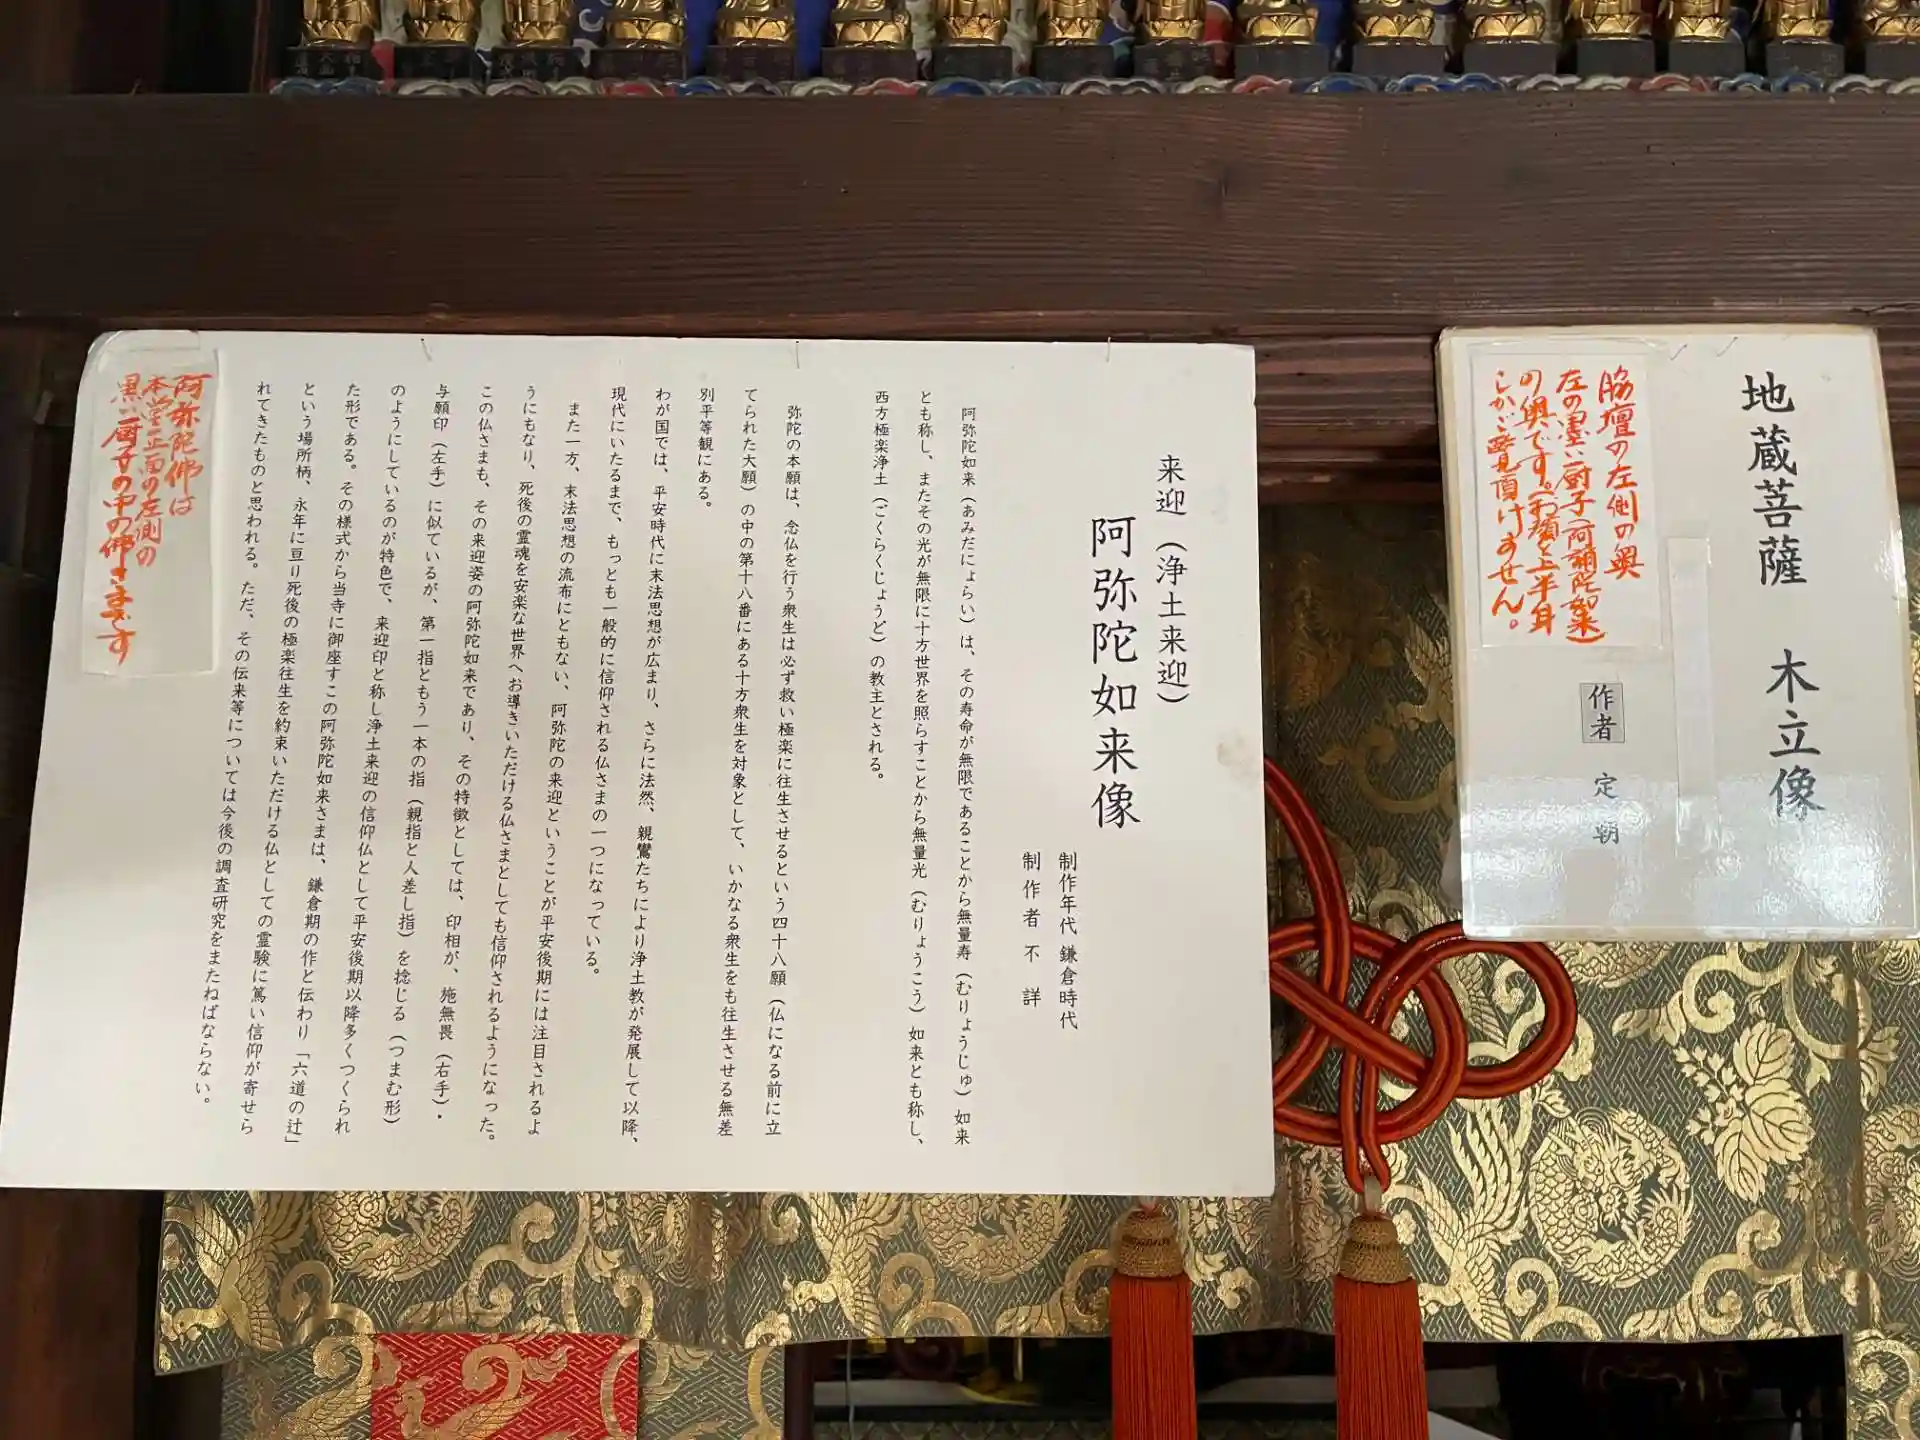 地蔵菩薩　木立像
作者　定朝
脇壇の左側の奥
左の黒い厨子(阿彌陀如来)
の奥です。(お顔と上半身
しかご覧頂けません。
来迎（浄土来迎）
阿弥陀如来像
制作年代 鎌倉時代
制作者 不詳
阿弥陀如来（あみだにょらい）は、その寿命が無限であることから無量寿（むりょうじゅ）如来
とも称し、またその光が無限に十方世界を照らすことから無量光（むりょうこう）如来とも称し、
西方極楽浄土（ごくらくじょうど）の教主とされる。
弥陀の本願は、念仏を行う衆生は必ず救い極楽に往生させるという四十八願（仏になる前に立
てられた大願）の中の第十八番にある十方衆生を対象として、いかなる衆生をも往生させる無差
別平等観にある。
わが国では、平安時代に末法思想が広まり、さらに法然、親鸞たちにより浄土教が発展して以降、
現代にいたるまで、もっとも一般的に信仰される仏さまの一つになっている。
また一方、末法思想の流布にともない、阿弥陀の来迎ということが平安後期には注目されるよ
うにもなり、死後の霊魂を安楽な世界へお導きいただける仏さまとしても信仰されるようになった。
この仏さまも、その来迎姿の阿弥陀如来であり、その特徴としては、印相が、施無畏（右手）・
与願印（左手）に似ているが、第一指ともう一本の指（親指と人差し指）を捻じる（つまむ形）
のようにしているのが特色で、来迎印と称し浄土来迎の信仰仏として平安後期以降多くつくられ
た形である。その様式から当寺に御座すこの阿弥陀如来さまは、鎌倉期の作と伝わり「六道の辻」
という場所柄、永年に亘り死後の極楽往生を約束いただける仏としての霊験に篤い信仰が寄せら
れてきたものと思われる。ただ、その伝来等については今後の調査研究をまたねばならない。
阿弥陀佛は
本堂正面の左側の
黒い厨子の中の佛さまです